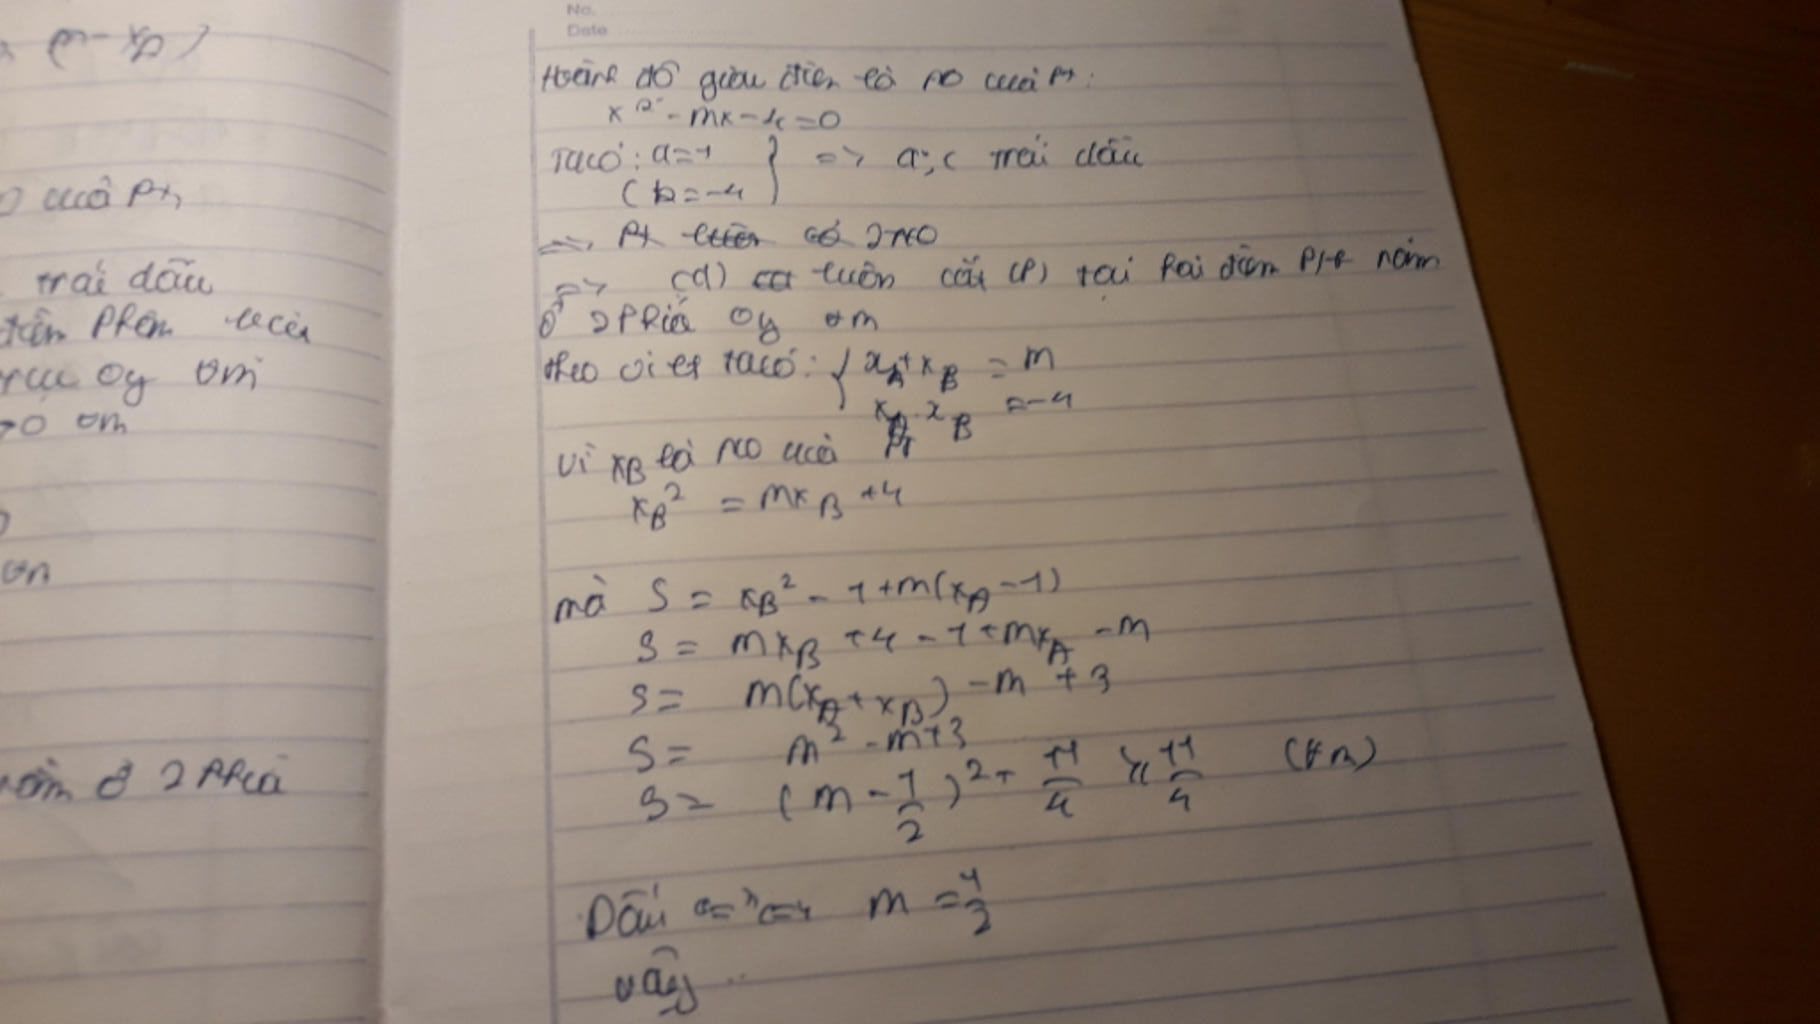 No.
Date
trái dấu
trục Oy ∀m
>0 ∀m
ở 2 phía
Hoành độ giao điểm là no của pt:
x² - mx - 4 = 0
Ta có: a = 1
c = -4
} => a; c trái dấu
=> Pt có 2 no
=> (d) luôn cắt (P) tại hai điểm nằm
ở 2 phía Oy ∀m
theo vi et ta có: { x_A + x_B = m
x_A . x_B = -4
Vì x_B là no của pt
x_B² = mx_B + 4
mà S = x_B² - 1 + m(x_A - 1)
S = mx_B + 4 - 1 + mx_A - m
S = m(x_A + x_B) - m + 3
S = m² - m + 3
S = (m - 1/2)² + 11/4 ≥ 11/4 (∀m)
Dấu m = 1/2
vậy ..